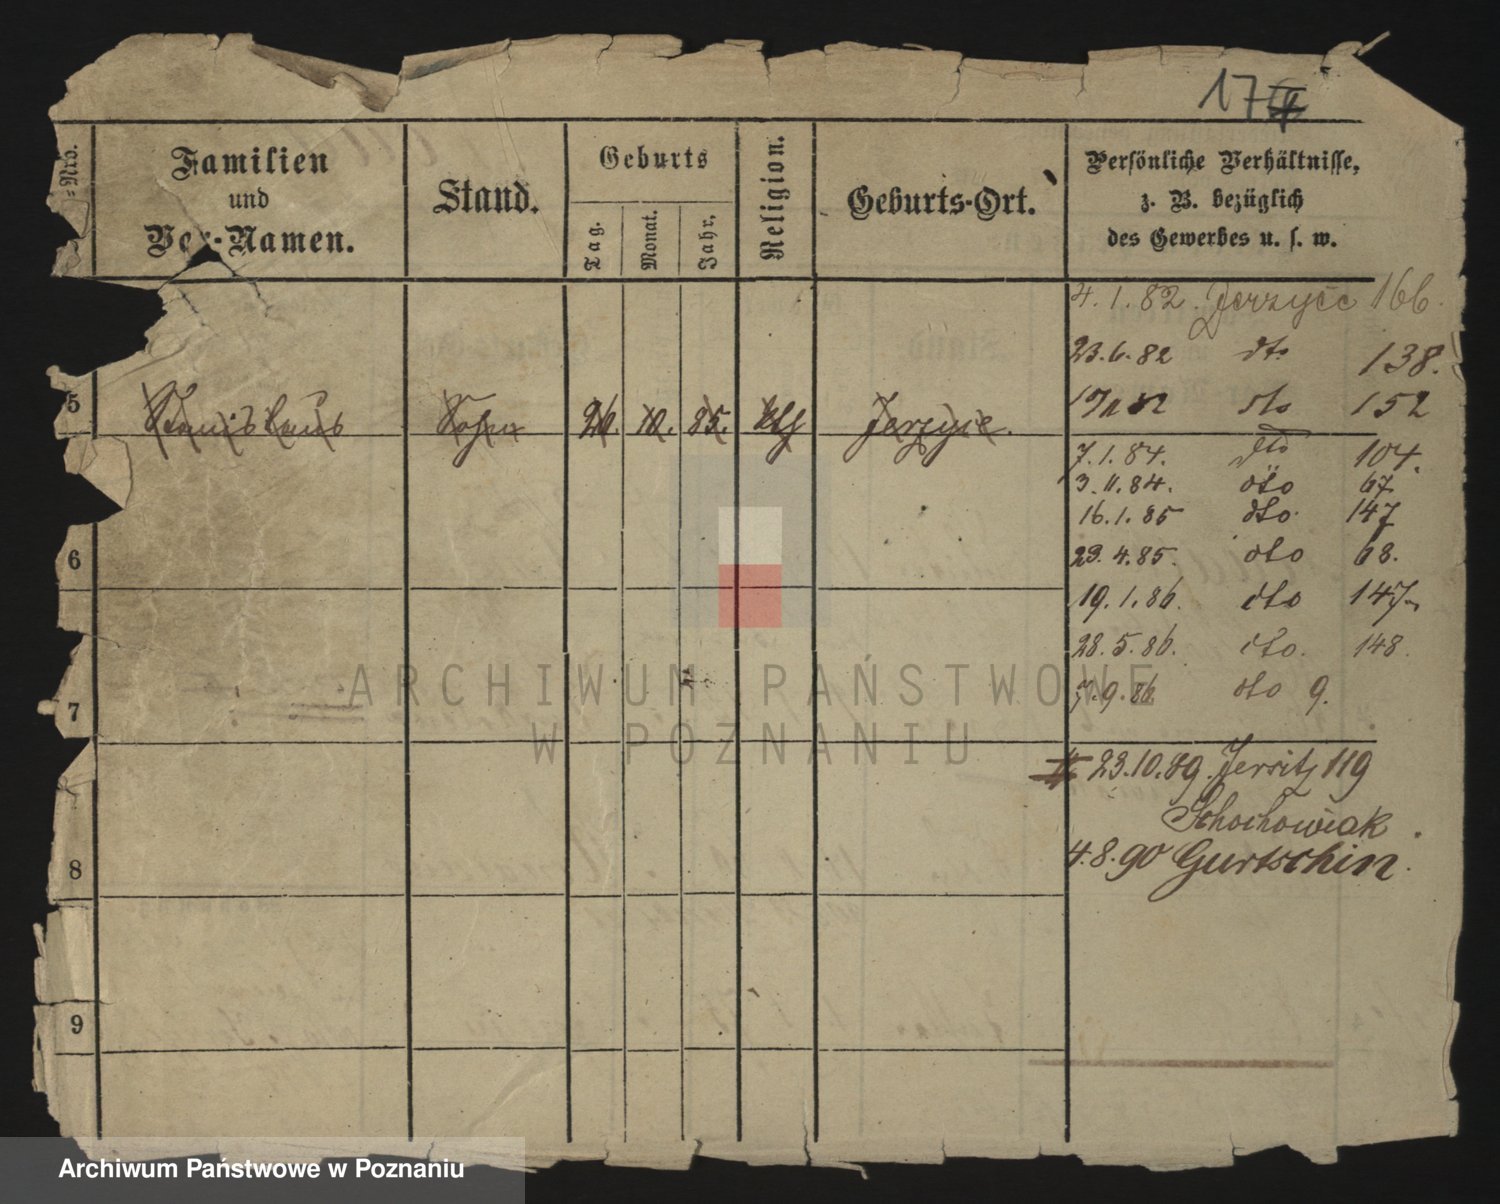 17
=Nro.
Familien
und
Vor-Namen.
Stand.
Geburts
Tag.
Monat.
Jahr.
Religion.
Geburts-Ort.
Persönliche Verhältnisse,
z. B. bezüglich
des Gewerbes u. s. w.
4.1.82. Jerzyce 166.
23.6.82 dto 138.
82 dto 152
5 Stanislaus Sohn 26. 10. 85. kth Jerzyce.
7.1.84. dto 104.
3.11.84. dto 67
16.1.85 dto 147
6
23.4.85. dto 68.
19.1.86. dto 147
28.5.86. dto. 148.
7.9.86 dto 9.
7
23.10.89. Jersitz 119
Schochowiak.
8
4.8.90 Gurtschin.
9
ARCHIWUM PAŃSTWOWE
W POZNANIU
Archiwum Państwowe w Poznaniu